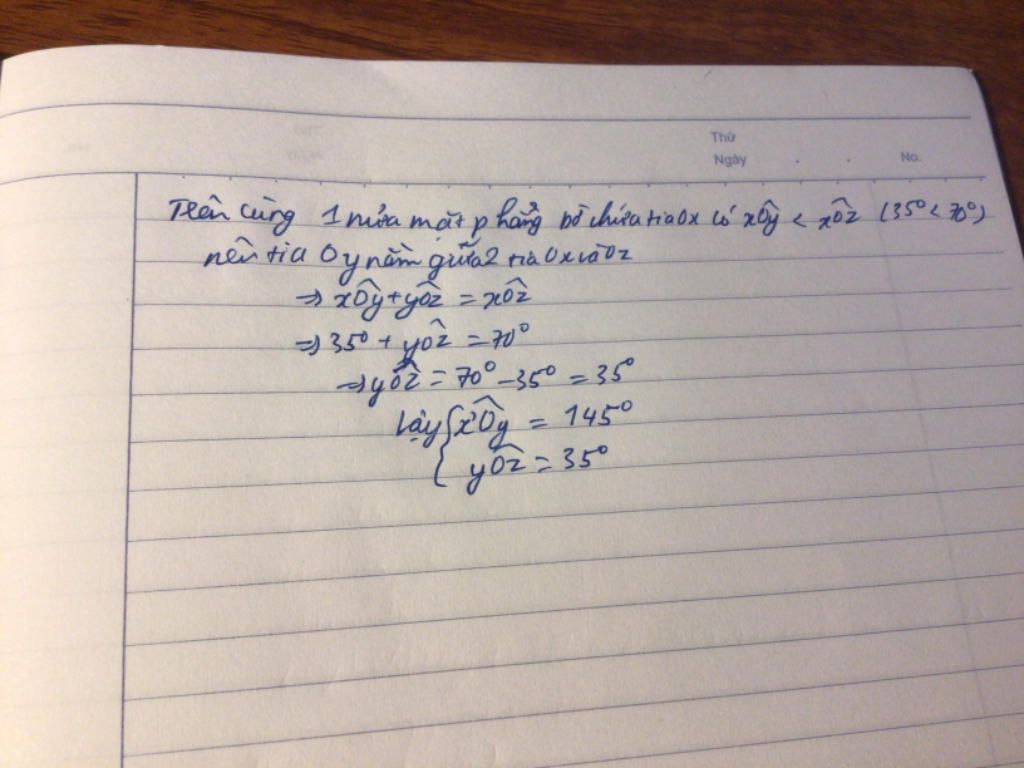 Thứ
Ngày . . No.
Trên cùng 1 nửa mặt phẳng bờ chứa tia Ox có xÔy < xÔz (35° < 70°)
nên tia Oy nằm giữa 2 tia Ox và Oz
⇒ xÔy + yÔz = xÔz
⇒ 35° + yÔz = 70°
⇒ yÔz = 70° - 35° = 35°
Vậy { x'Ôy = 145°
{ yÔz = 35°